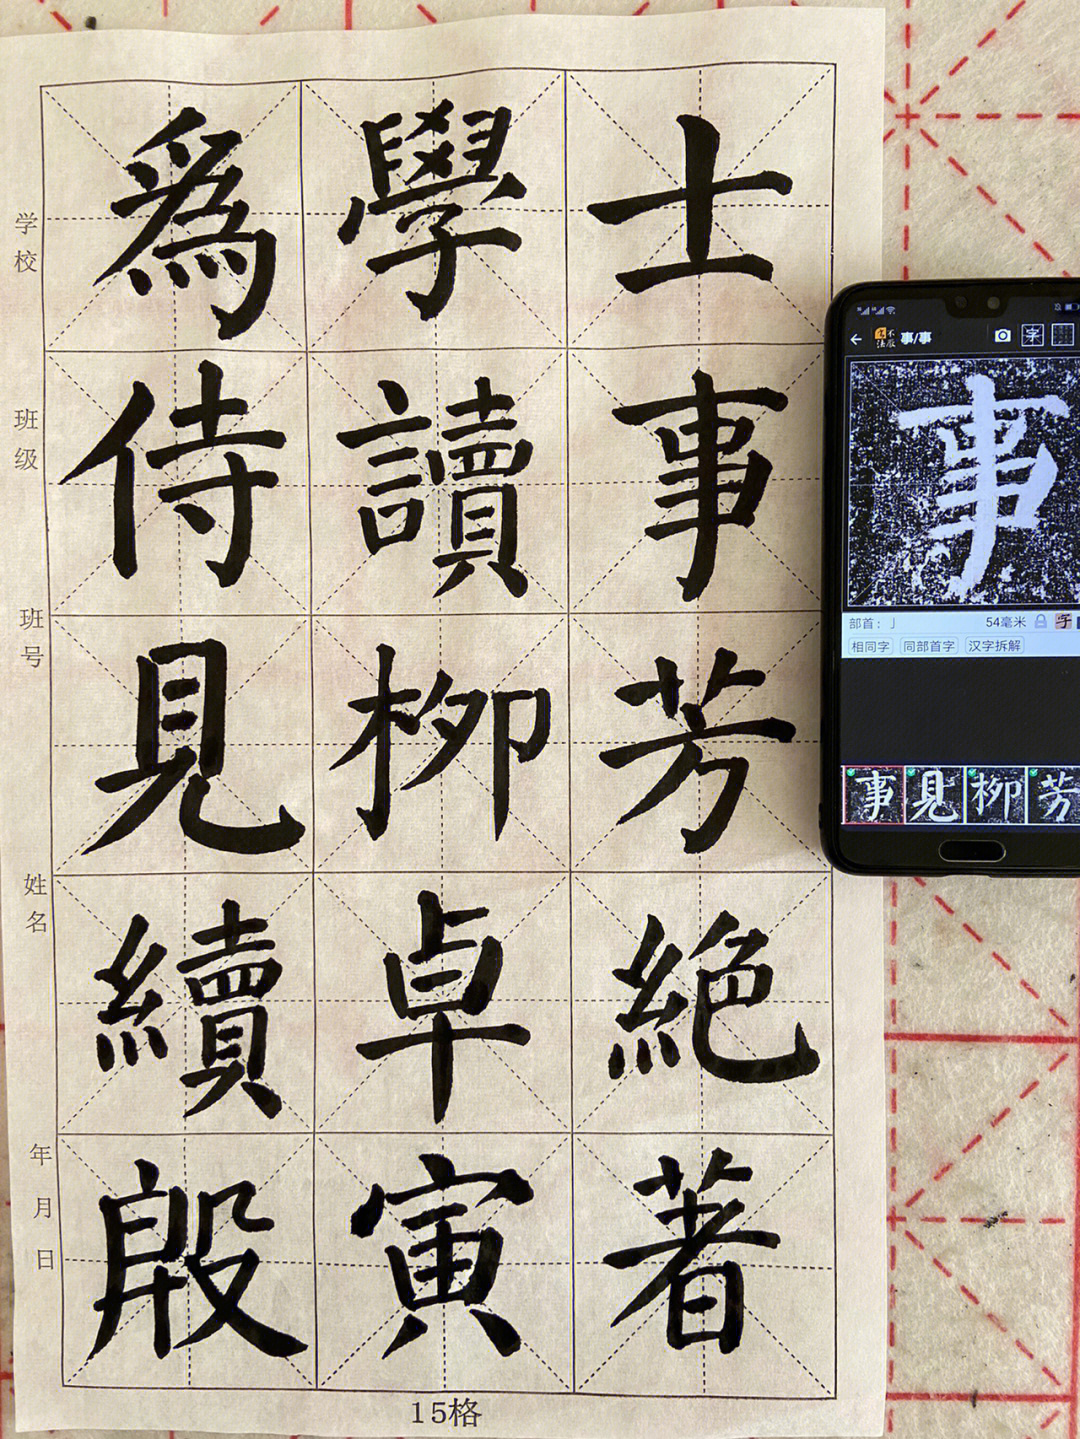 士事芳絶著
學讀柳卓寅
爲侍見續殷
学校
班级
班号
姓名
年月日
15格
事/事
字
事
部首：亅
54毫米
字
相同字 同部首字 汉字拆解
事 見 柳 芳